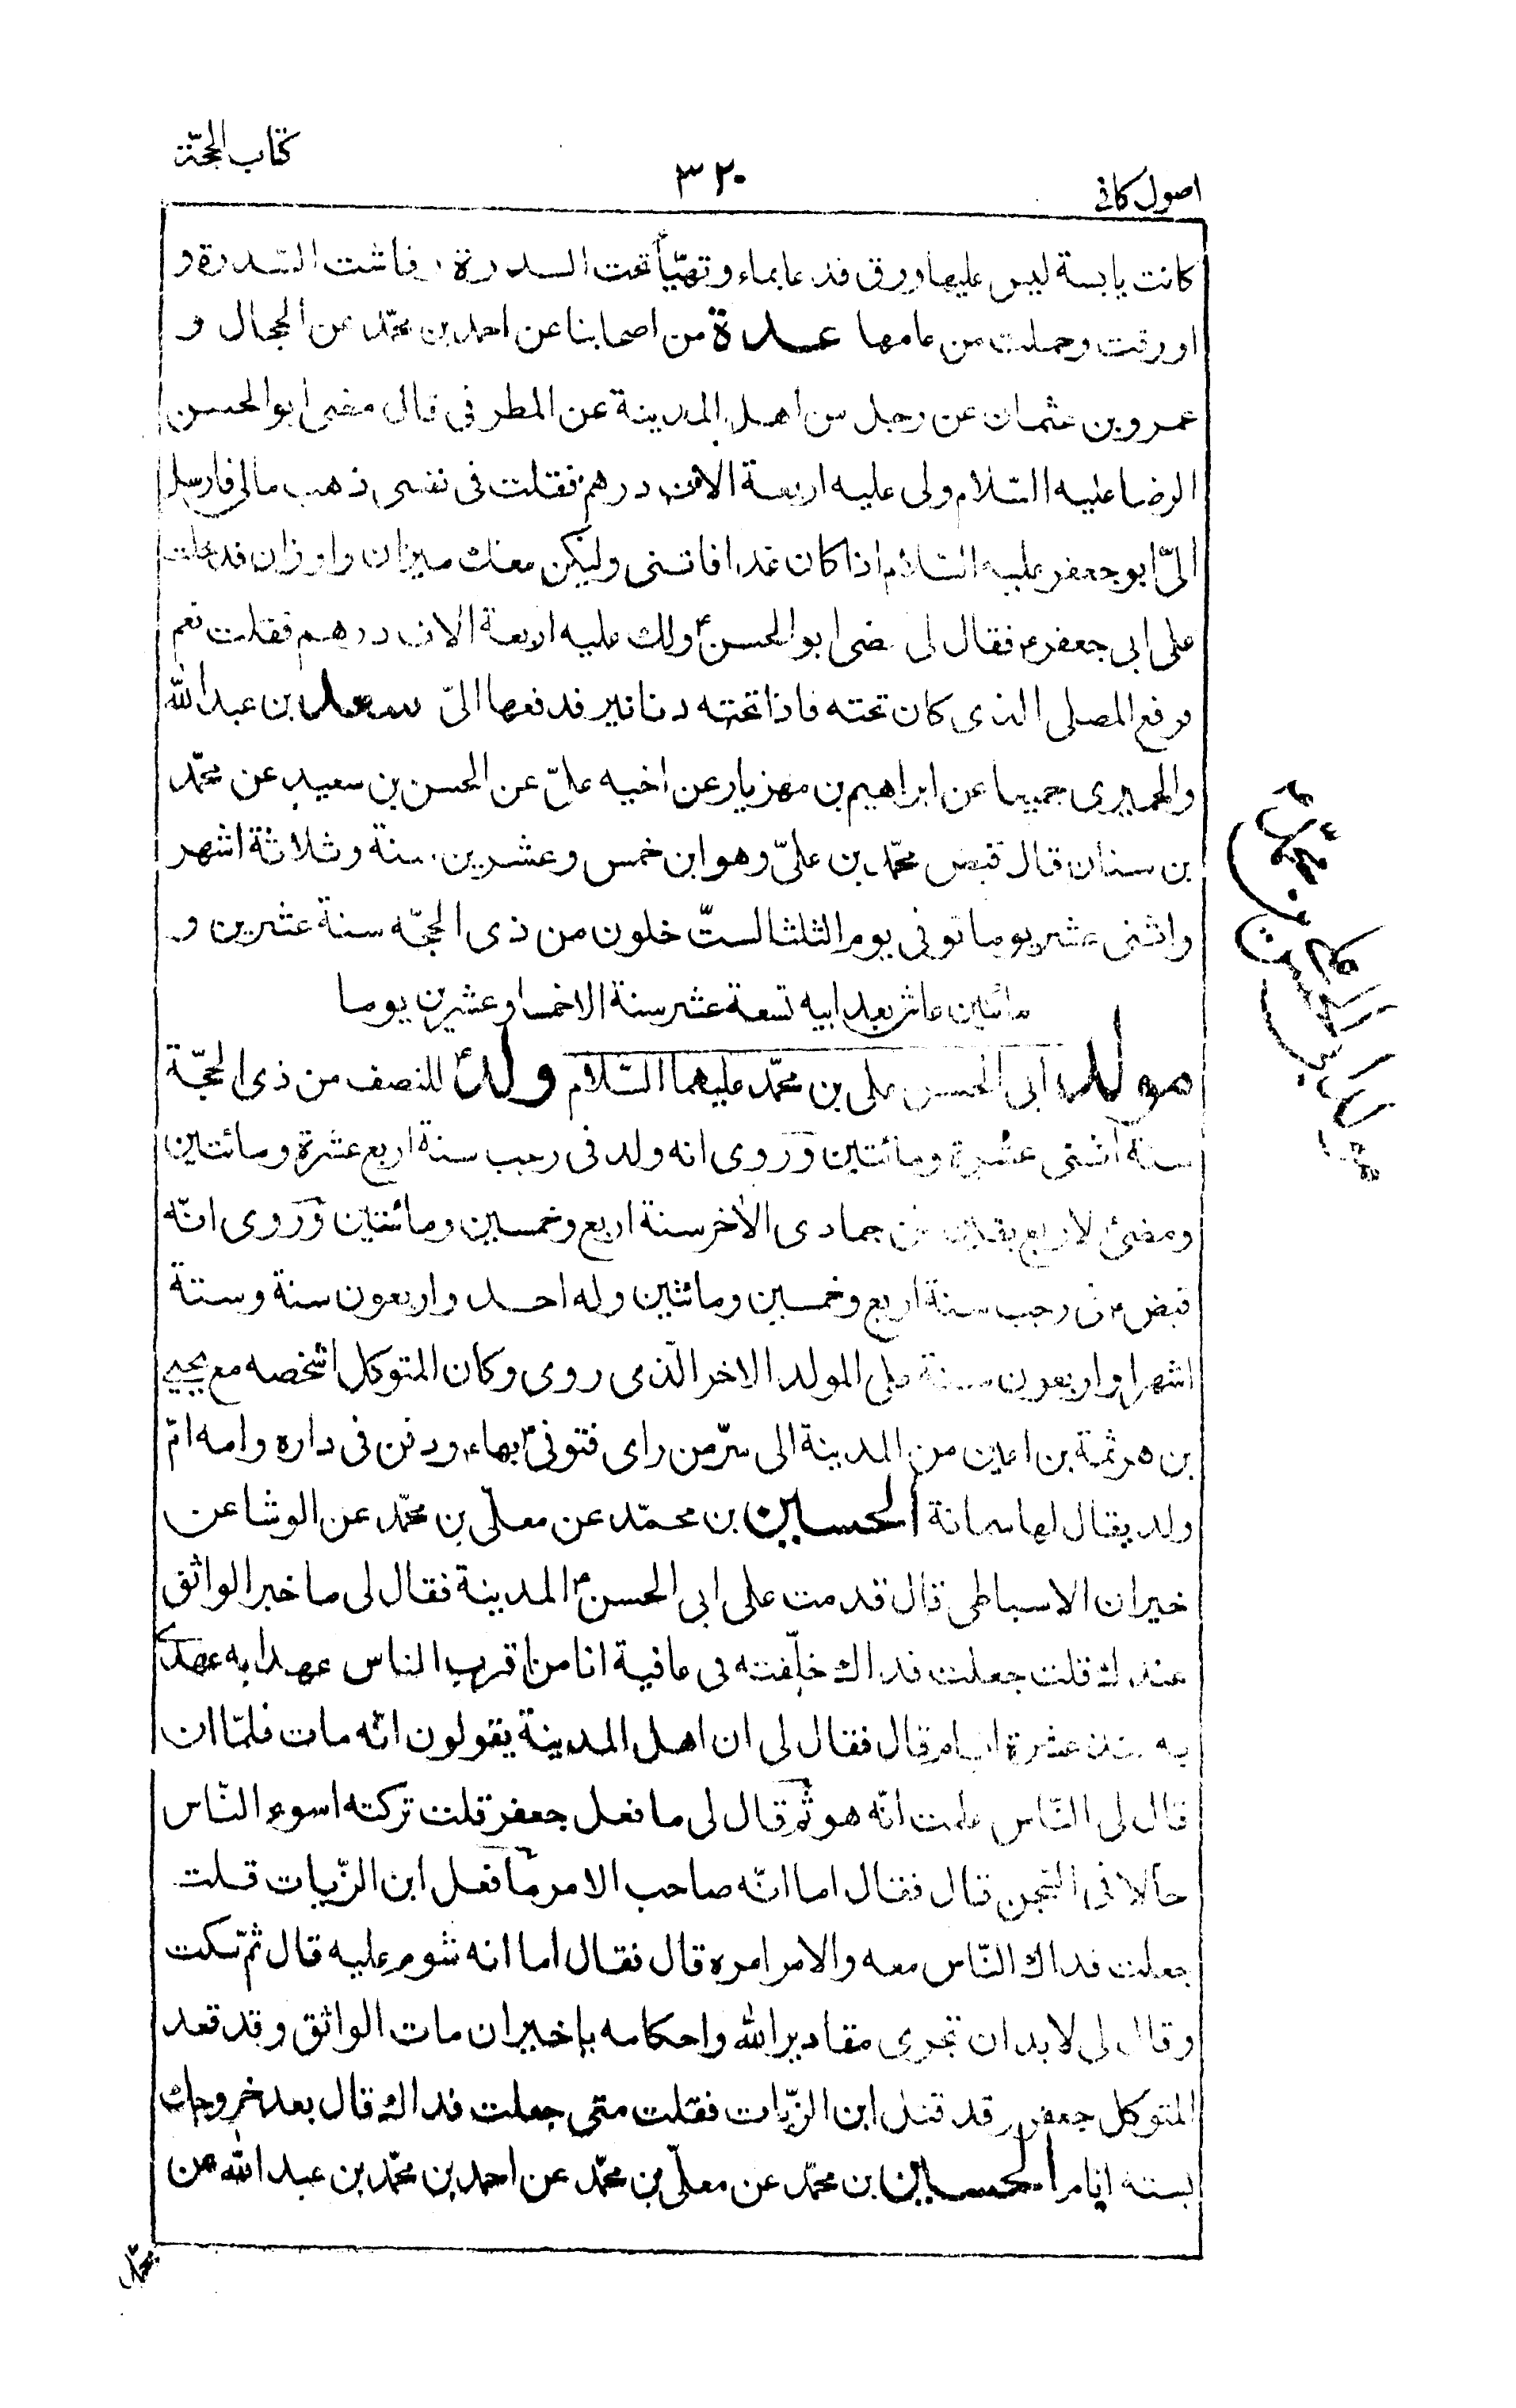 كتاب الحجّة
٣٢٠
اصول كافى
كانت يابسة ليس عليها ورق فدعا بماء وتهيّأ تحت السدرة فعاشت السّدرة و
اورقت وحملت من عامها عدة من اصحابنا عن احمد بن محمّد عن الحجال و
عمرو بن عثمان عن رجل من اهل المدينة عن المطرفى قال مضى ابو الحسن
الرضا عليه السّلام ولى عليه اربعة الاف درهم فقلت فى نفسى ذهب مالى فارسل
الىّ ابو جعفر عليه السّلام اذا كان غدا فاتنى وليكن معك ميزان واوزان فدخلت
على ابى جعفر ع فقال لى مضى ابو الحسن ع ولك عليه اربعة الاف درهم فقلت نعم
فرفع المصلى الذى كان تحته فاذا تحته دنانير فدفعها الىّ سعد بن عبد الله
والحميرى جميعا عن ابراهيم بن مهزيار عن اخيه علىّ عن الحسن بن سعيد عن محمّد
بن سنان قال قبض محمّد بن علىّ وهو ابن خمس وعشرين سنة وثلاثة اشهر
واثنى عشر يوما توفى يوم الثلثا لستّ خلون من ذى الحجّه سنة عشرين و
مائتين عاش بعد ابيه تسعة عشر سنة الا خمسا وعشرين يوما
مولد ابى الحسن على بن محمّد عليهما السّلام ولد ع للنصف من ذى الحجّة
سنة اثنتى عشرة ومائتين وروى انه ولد فى رجب سنة اربع عشرة ومائتين
ومضى لاربع بقين من جمادى الاخر سنة اربع وخمسين ومائتين وروى انّه
قبض ع فى رجب سنة اربع وخمسين ومائتين وله احد واربعون سنة وستة
اشهر او اربعون سنة على المولد الاخر الّذى روى وكان المتوكل اشخصه مع يحيى
بن هرثمة بن اعين من المدينة الى سرّ من راى فتوفىّ بها ع ودفن فى داره وامه امّ
ولد يقال لها سمانة الحسين بن محمّد عن معلّى بن محمّد عن الوشا عن
خيران الاسباطى قال قدمت على ابى الحسن ع المدينة فقال لى ما خبر الواثق
عندك قلت جعلت فداك خلّفته فى عافية انا من اقرب الناس عهدا به عهدى
به منذ عشرة ايام قال فقال لى ان اهل المدينة يقولون انّه مات فلمّا ان
قال لى النّاس علمت انّه هو ثم قال لى ما فعل جعفر قلت تركته اسوء النّاس
حالا فى السّجن قال فقال اما انّه صاحب الامر ما فعل ابن الزّيات قلت
جعلت فداك النّاس معه والامر امره قال فقال اما انه شوم عليه قال ثمّ سكت
وقال لى لا بد ان تجرى مقادير الله واحكامه يا خيران مات الواثق وقد قعد
المتوكل جعفر وقد قتل ابن الزّيات فقلت متى جعلت فداك قال بعد خروجك
بسته ايّام الحسين بن محمّد عن معلّى بن محمّد عن احمد بن محمّد بن عبد الله عن
محمّد